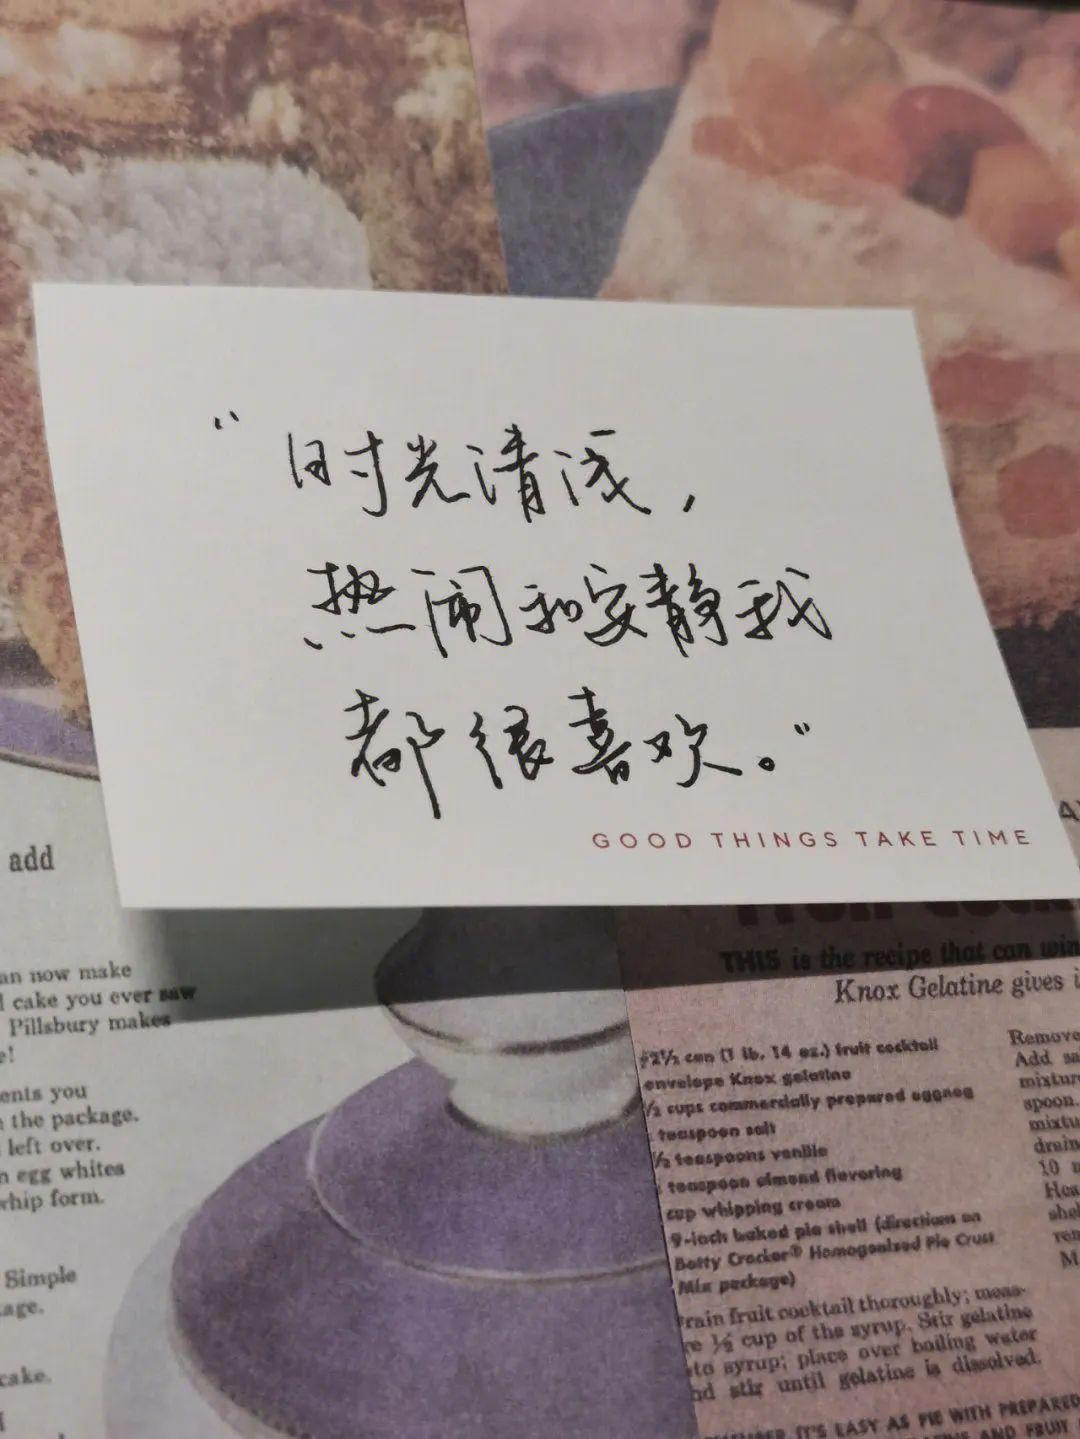 “时光清浅，
热闹和安静我
都很喜欢。”
GOOD THINGS TAKE TIME
add
an now make
cake you ever saw
Pillsbury makes
e!
ents you
the package.
left over.
n egg whites
whip form.
Simple
age.
cake.
THIS is the recipe that can win
Knox Gelatine gives i
#2½ can (1 lb. 14 oz.) fruit cocktail
envelope Knox gelatine
½ cups commercially prepared eggnog
teaspoon salt
½ teaspoons vanilla
teaspoon almond flavoring
cup whipping cream
9-inch baked pie shell (directions on
Betty Crocker® Homogenized Pie Crust
Mix package)
rain fruit cocktail thoroughly; meas-
re ½ cup of the syrup. Stir gelatine
to syrup; place over boiling water
nd stir until gelatine is dissolved.
Remove
Add sa
mixture
spoon.
mixtu
drain
10 m
Hea
shel
rem
M
IT'S EASY AS PIE WITH PREPARED
AND FRUIT